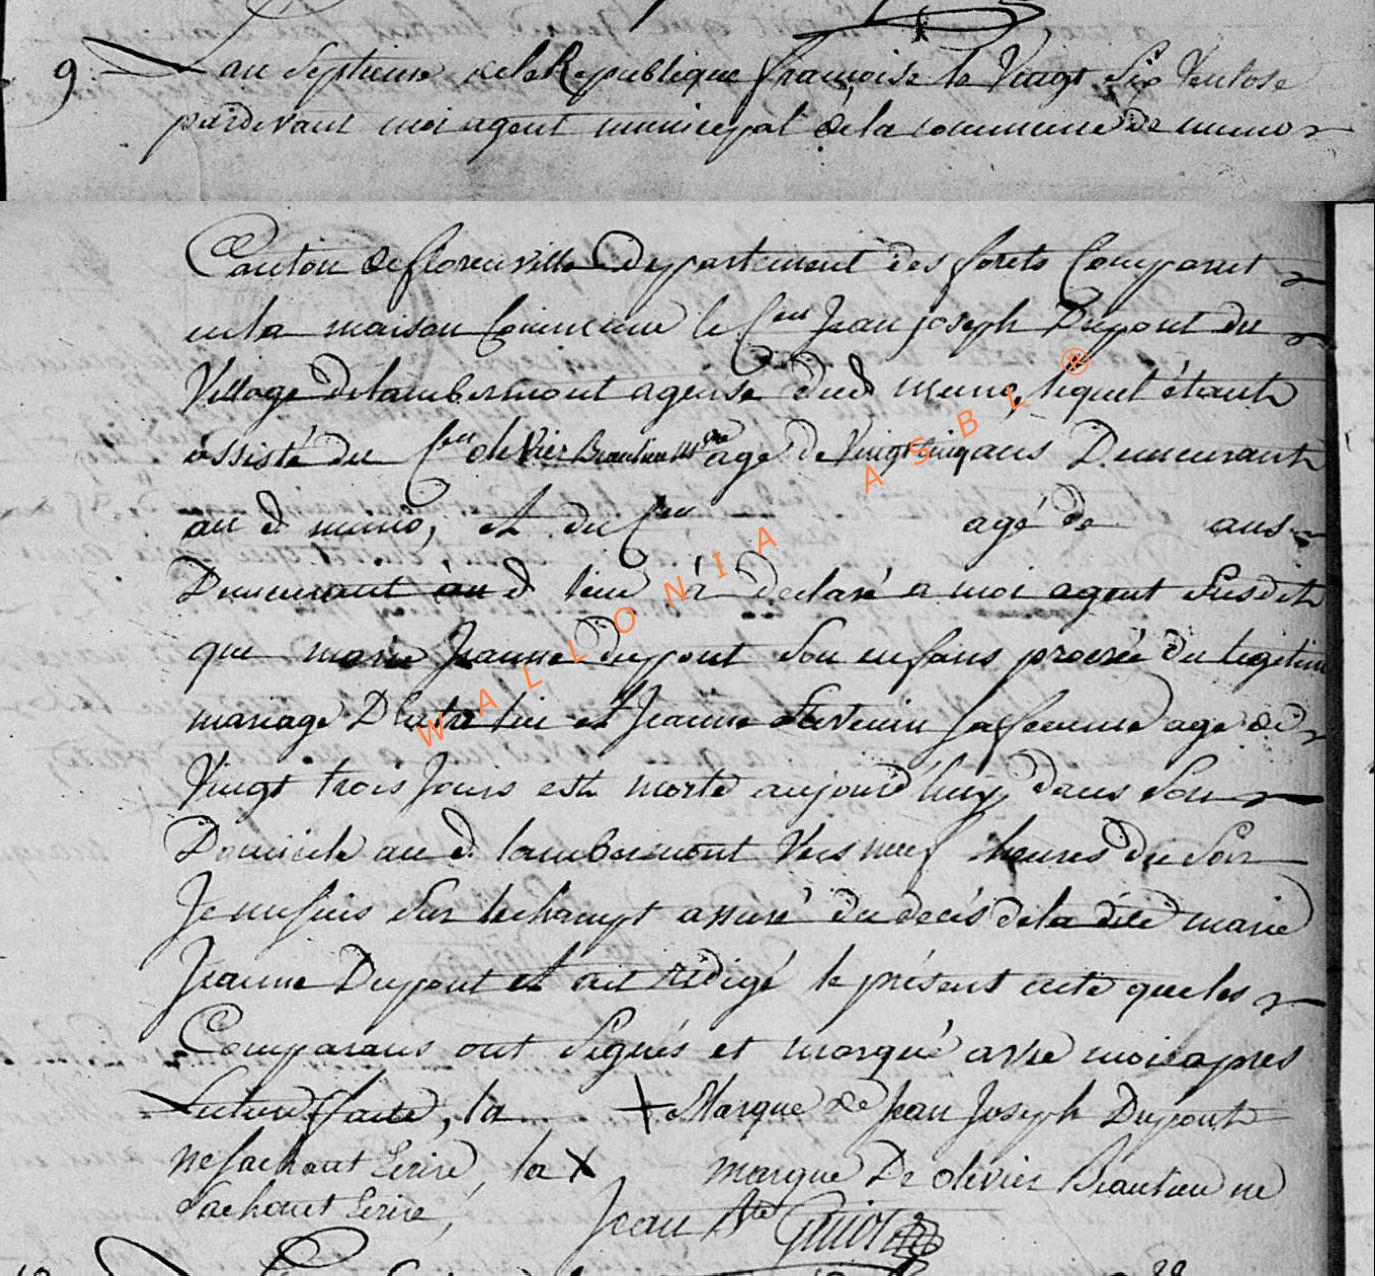 9 L'an Septieme de la Republique francoise le Vingt Six Ventose
pardevant moi agent municipal de la commune de muno
Canton de florenville Departement des forets Comparut
en la maison Commune le Cen Jean joseph Dupont du
Village de lambermont agense dud muno, lequel étant
assisté du Cen olivier Beautieu agé de Vingt cinq ans Demeurant
au d muno, et du Cen agé de ans
Demeurant au d lieu à declaré a moi agent Susdit
que marie Jeanne dupont Son enfans procréé du legitime
mariage D'entre lui et Jeanne Sa femme agé de
Vingt trois Jours est morte aujourd'huy dans Son
Domicile au d. lambermont Vers neuf heures du Soir
Je me suis Sur le champt assuré du decés de la dite marie
Jeanne Dupont et ait redigé le présent acte que les
Comparans ont Signés et marqué avec moi apres
Lecture faite, la + Marque de Jean Joseph Dupont
ne sachant Ecrire, la X marque De olivier Beautieu ne
Sachant Ecrire,
Jean Bte Guiot
WALLONIA ASBL ®